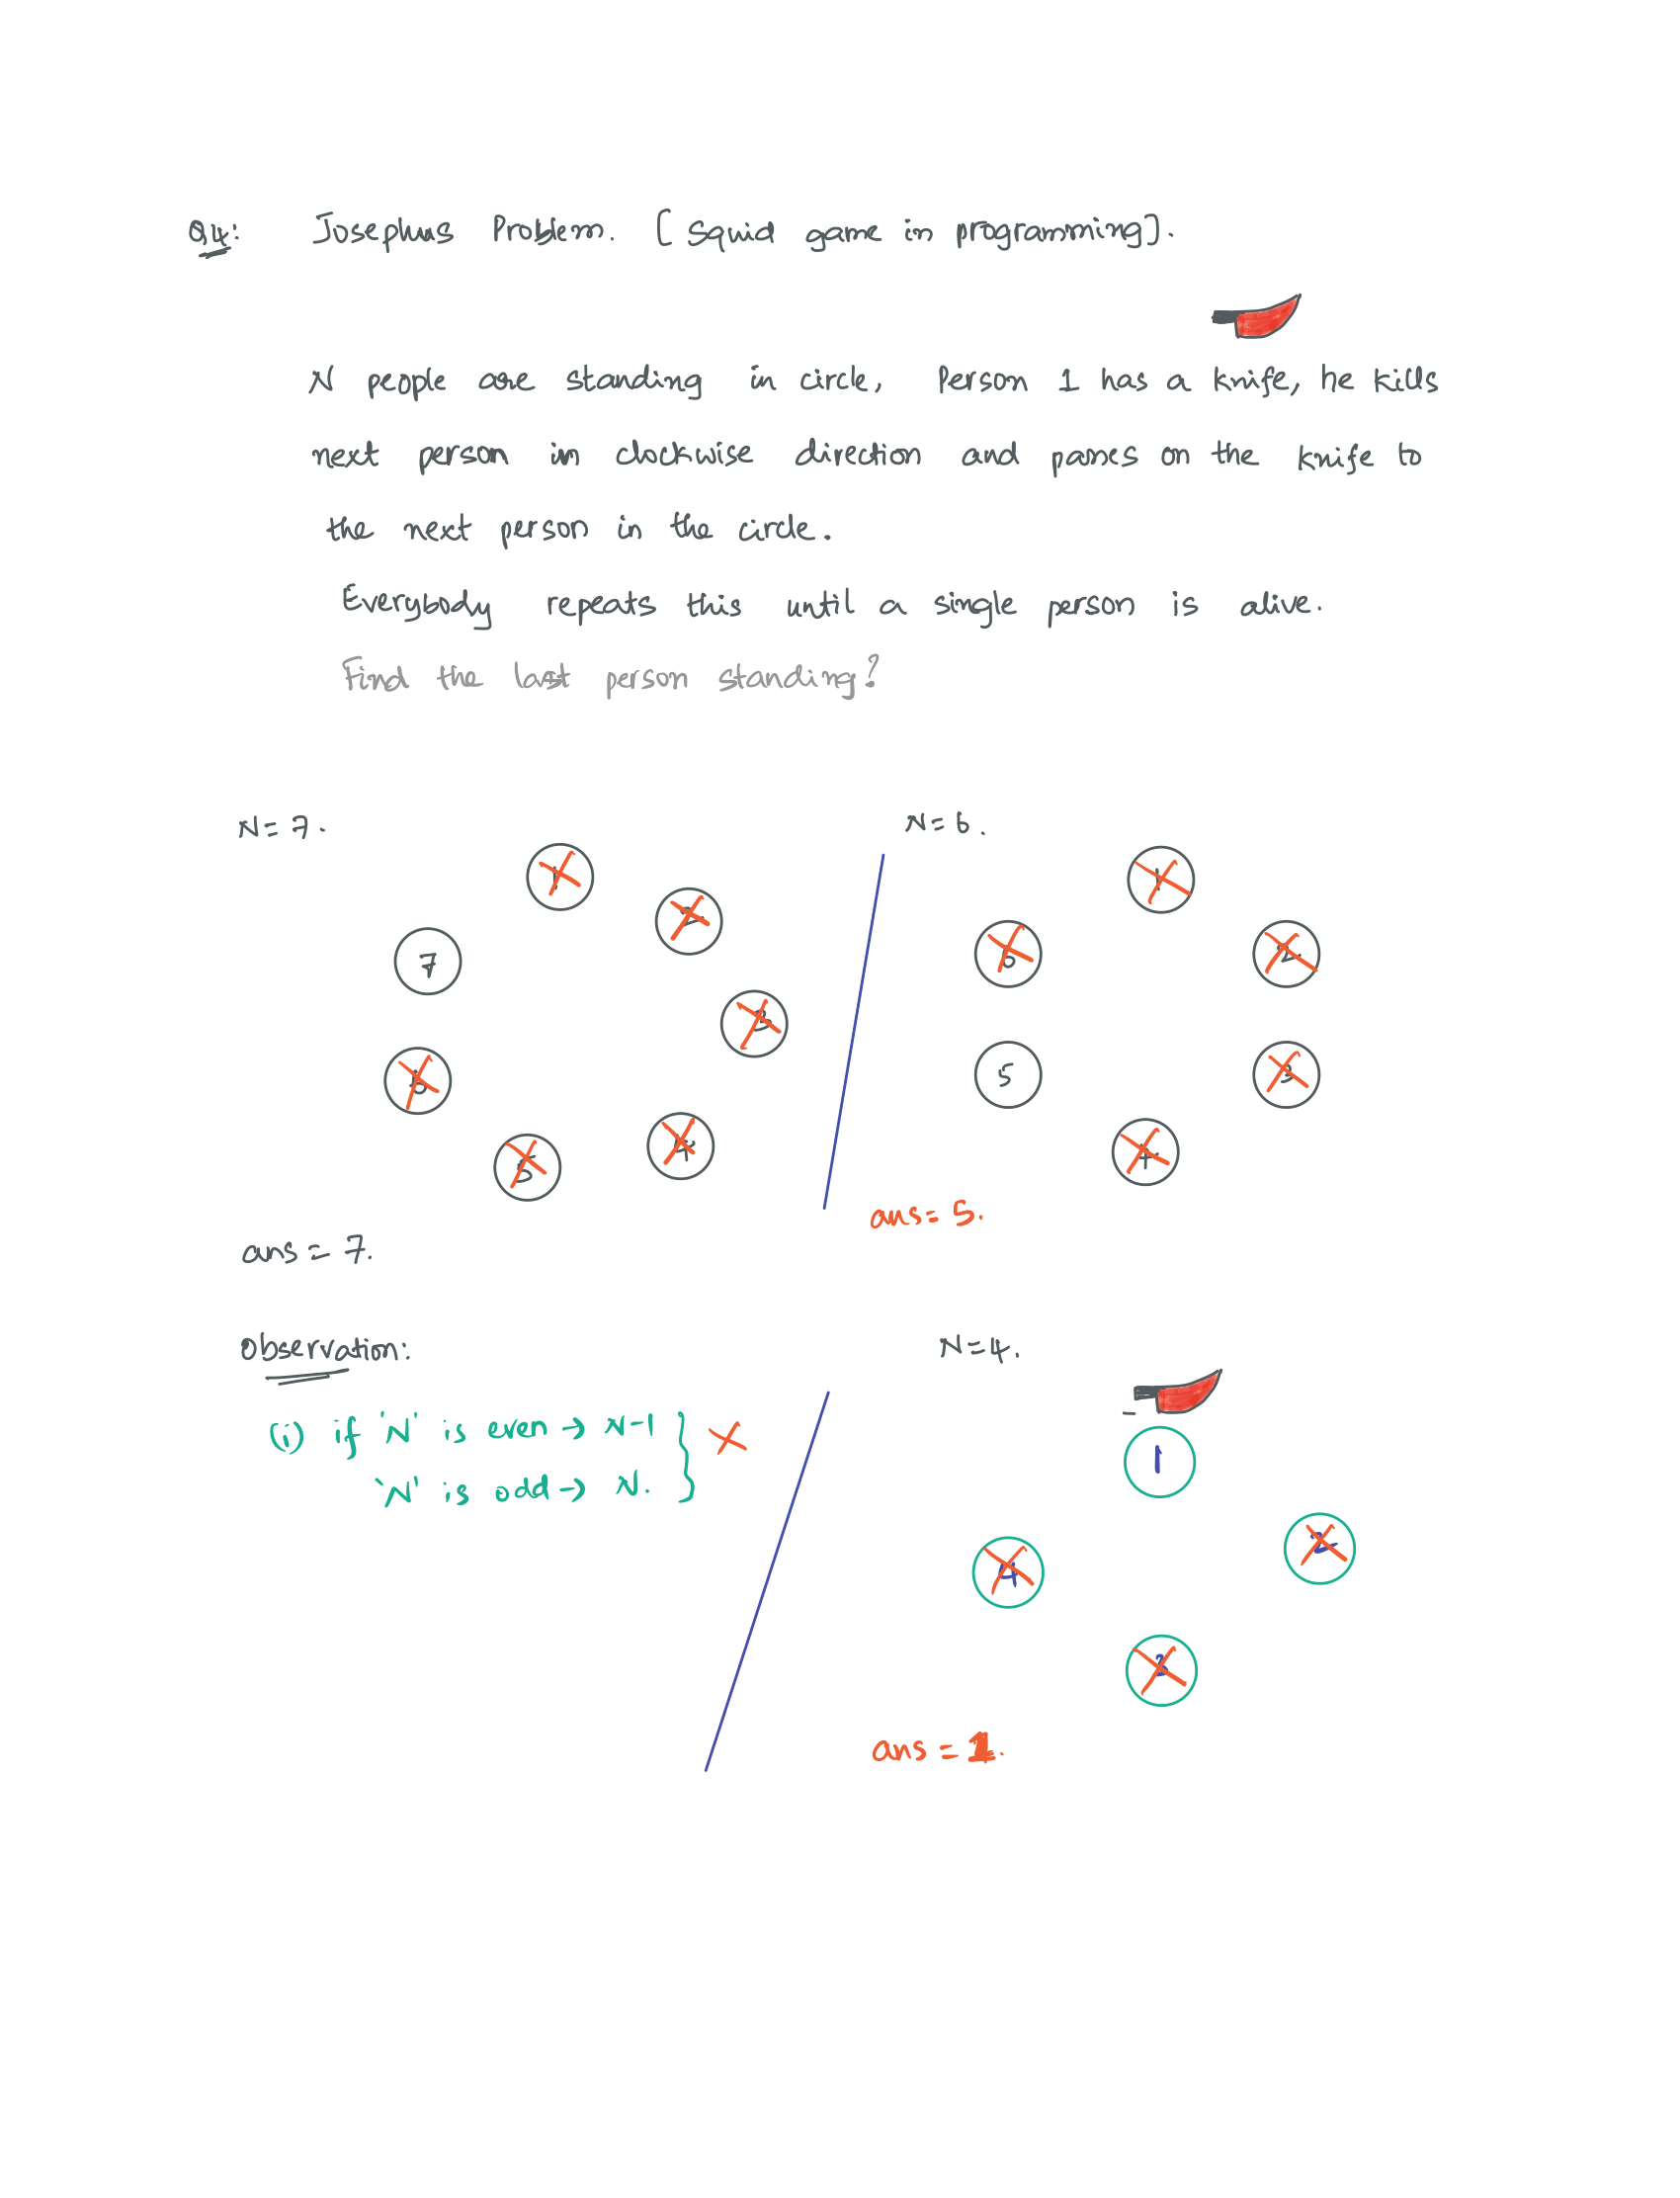 Q4: Josephus Problem. [Squid game in programming].
N people are standing in circle, Person 1 has a knife, he kills
next person in clockwise direction and passes on the knife to
the next person in the circle.
Everybody repeats this until a single person is alive.
Find the last person standing?
N=7.
1
2
3
4
5
6
7
ans = 7.
N=6.
1
2
3
4
5
6
ans = 5.
Observation:
(i) if 'N' is even → N-1
'N' is odd → N.
N=4.
1
2
3
4
ans = 1.